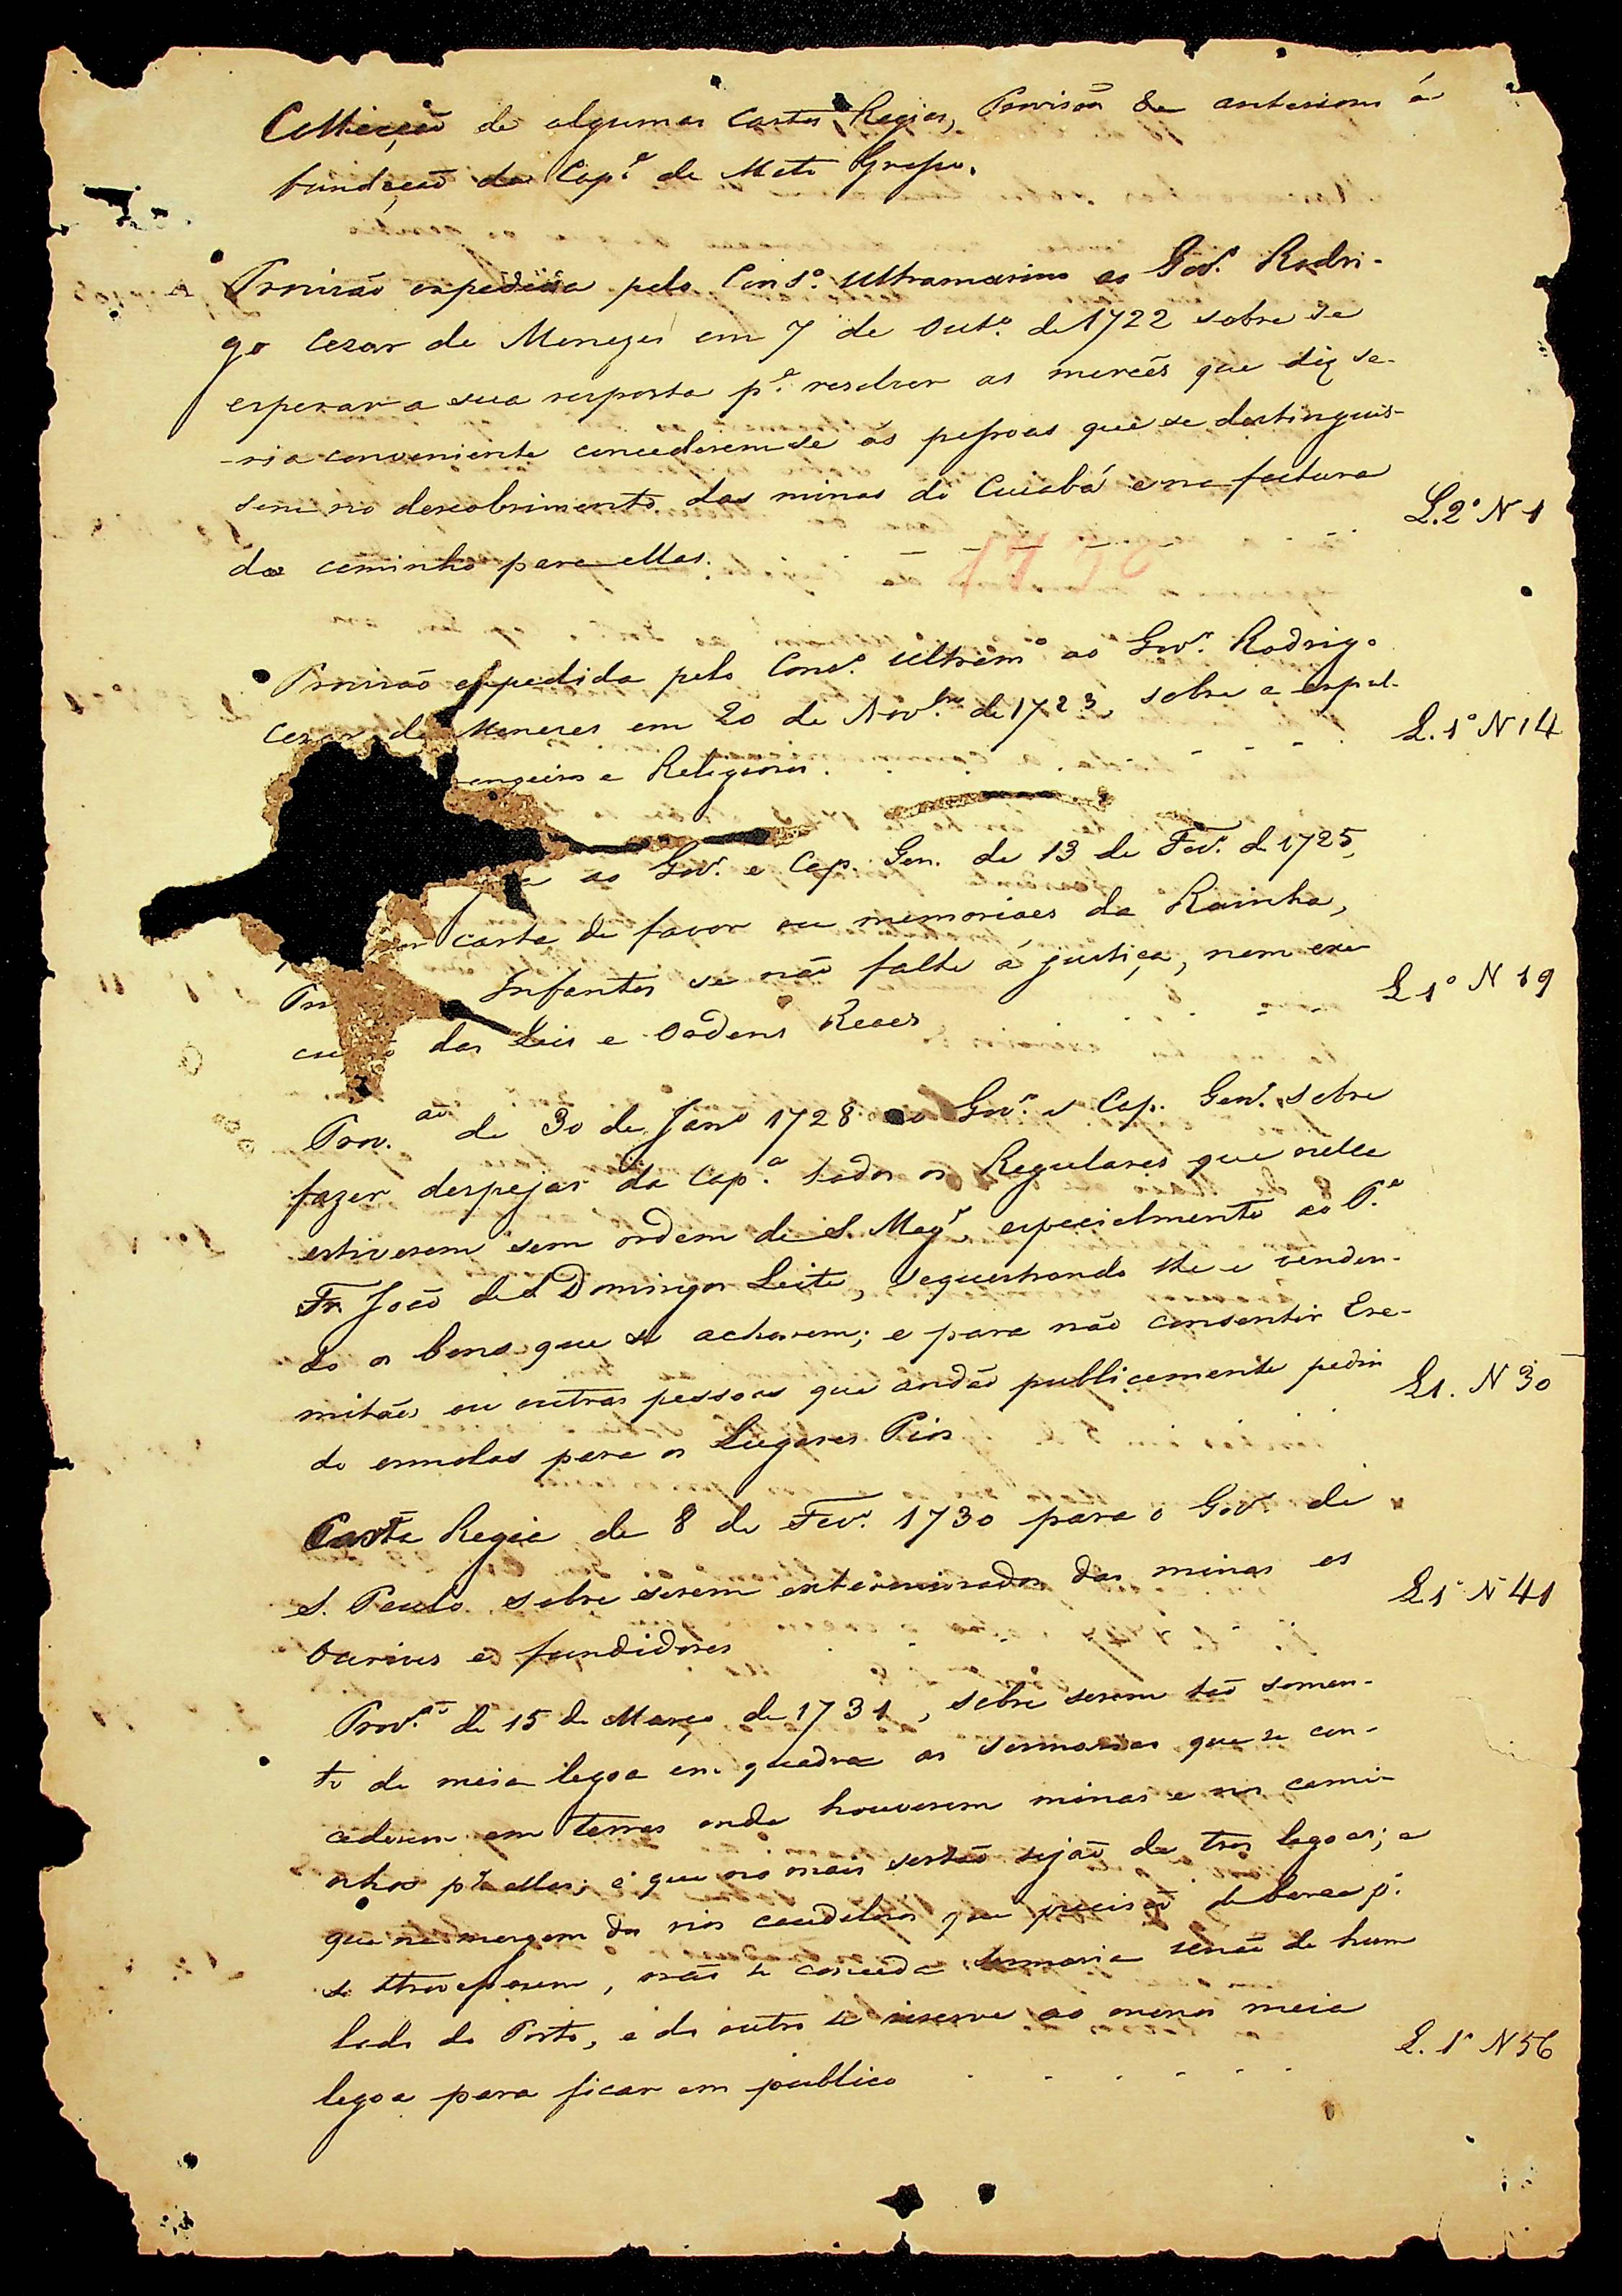 Collecção de algumas Cartas Regias, Provisoẽs &a anteriores á
fundação da Cap.ª de Mato Grosso.
Provisão expedida pelo Cons.º Ultramarino ao Gov.r Rodri-
go Cezar de Menezes em 7 de Out.º de 1722 sobre se
esperar a sua resposta p.ª resolver as mercês que diz se-
-ria conveniente concederem-se ás pessoas que se destinguis-
sem no descobrimento das minas do Cuiabá e na factura
do caminho para ellas.
L.2º N 1
Provisão expedida pelo Cons.º Ultram.º ao Gov.r Rodrigo
Cezar de Menezes em 20 de Nov.bro de 1723, sobre a expul-
rangeiros e Religiosos.
L.1º N 14
ao Gov.r e Cap. Gen. de 13 de Fev.º de 1725,
por carta de favor ou memoriaes da Rainha,
Infantes se não falte á justiça, nem exe-
cução das Leis e Ordens Reaes
L 1º N 19
Prov.ão de 30 de Jan.º 1728 ao Gov.r e Cap. Gen.l sobre
fazer despejar da Cap.ª todos os Regulares que nella
estiverem sem ordem de S. Mag.e, especialmente ao P.e
Fr. João de S Domingos Leite, sequestrando lhe e venden-
do os bens que se acharem; e para não consentir Ere-
mitães ou outras pessoas que andão publicamente pedin
do esmolas para os Lugares Pios
L1. N 30
Carta Regia de 8 de Fev.º 1730 para o Gov.r de
S. Paulo sobre serem exterminados das minas os
Ourives e fundidores
L 1º N 41
Prov.ão de 15 de Março de 1731, sobre serem tão somen-
te de meia legoa em quadra as sesmarias que se con-
cederem em terras onde houverem minas e nos cami-
nhos p.ª ellas; e que no mais sertão sejão de tres legoas; e
que na margem dos rios caudelosos que precisão de barca p.ª
se atravessarem, não se conceda sesmaria senão de hum
lado do Porto, e do outro se reserve ao menos meia
legoa para ficar em publico
L. 1º N 56